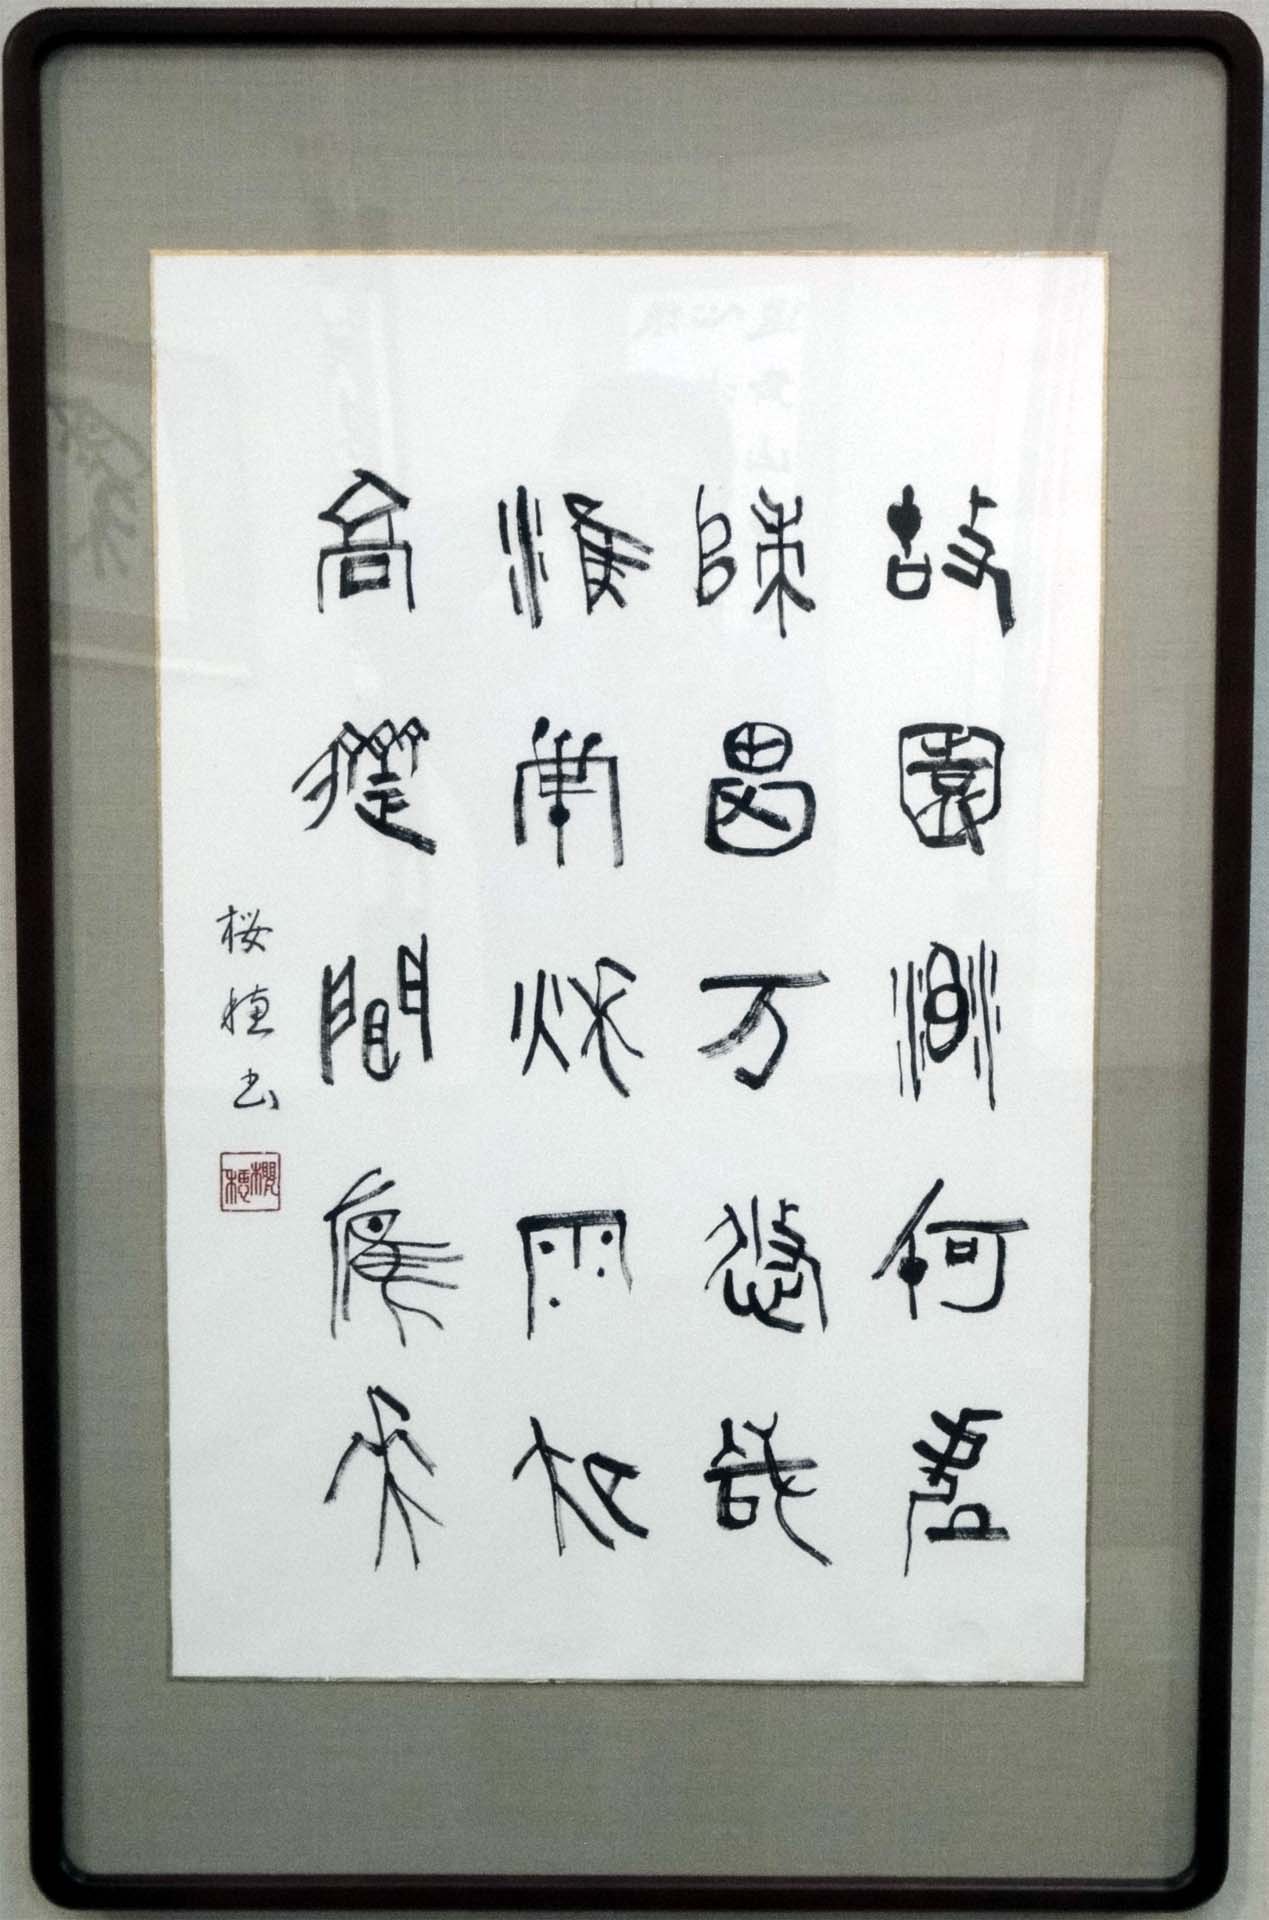 故園渺何處
歸思方悠哉
淮南秋雨夜
高齋聞雁來
桜穂书
櫻穂